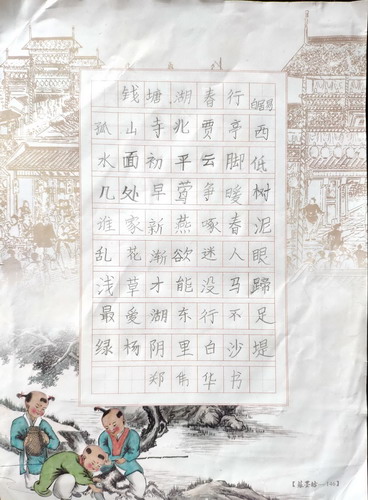 钱塘湖春行 白居易
孤山寺北贾亭西
水面初平云脚低
几处早莺争暖树
谁家新燕啄春泥
乱花渐欲迷人眼
浅草才能没马蹄
最爱湖东行不足
绿杨阴里白沙堤
郑伟华书